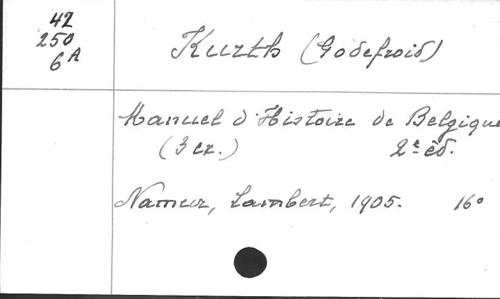 42
250
6A
Kurth (Godefroid)
Manuel d'Histoire de Belgique
(3 ex.) 2e éd.
Namur, Lambert, 1905. 16°